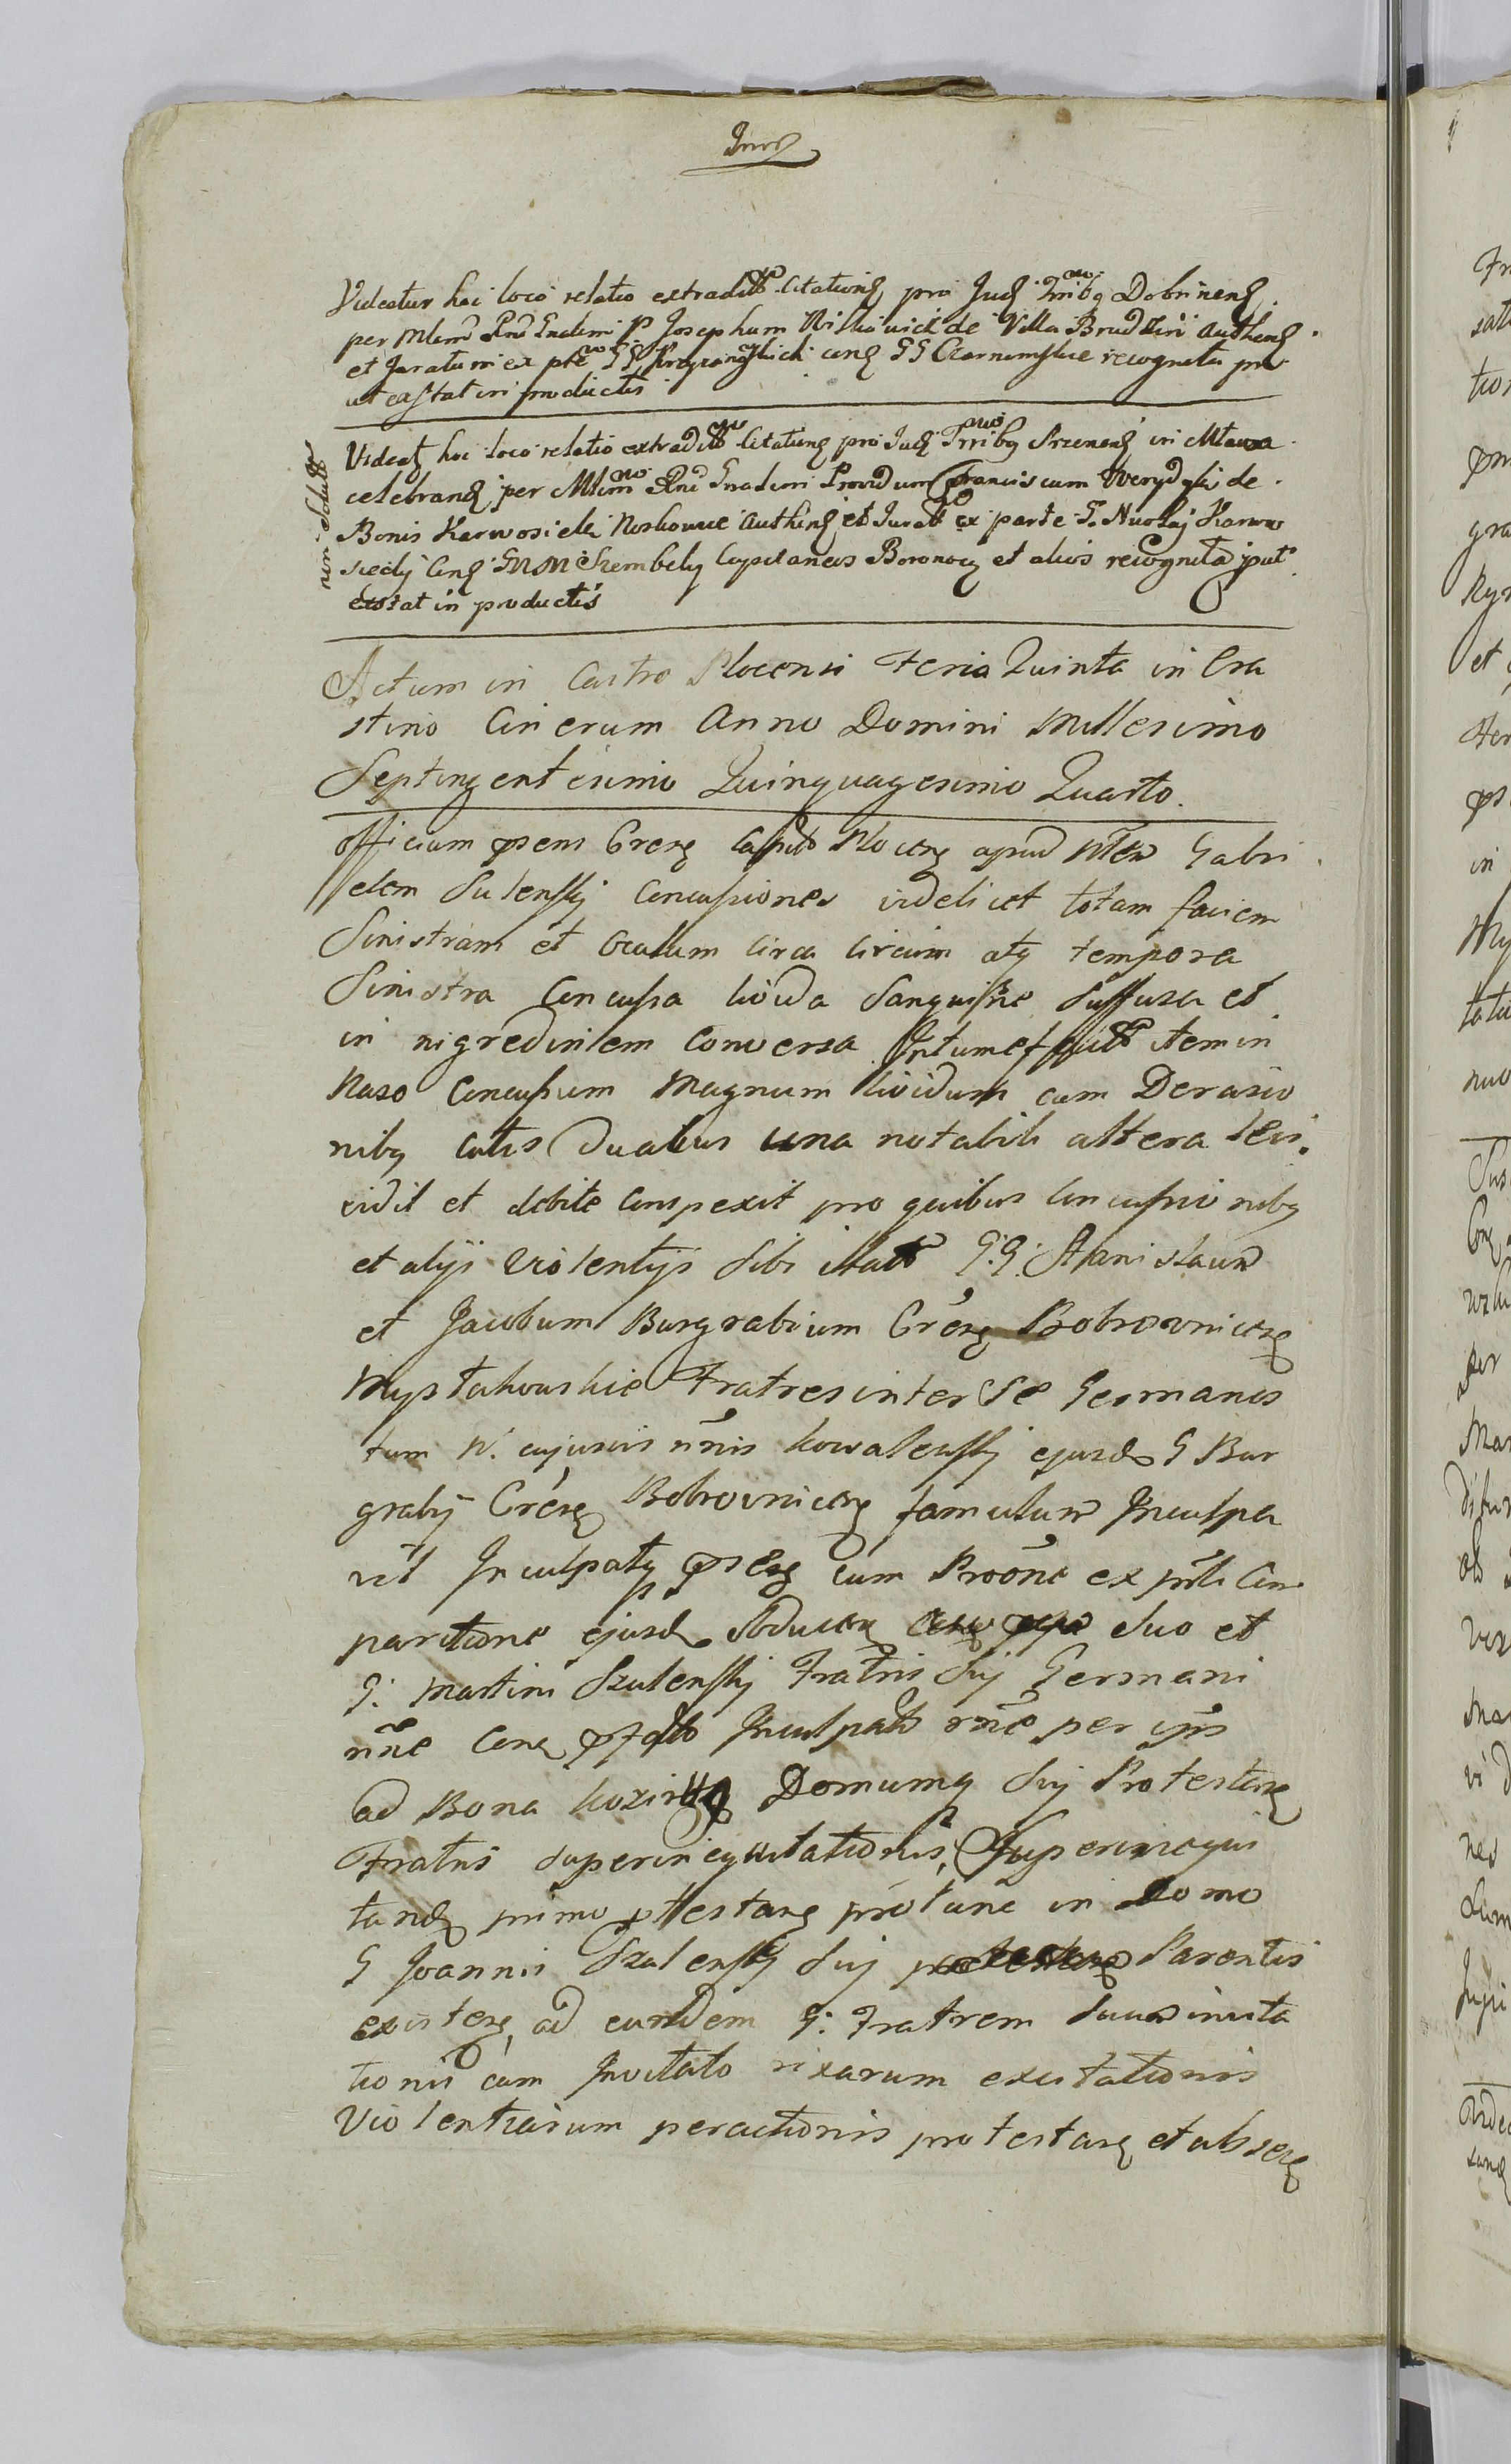 Videatur hoc loco relatio extradit. Citationis pro Jud. Trribq Dobrinens.
per Mlem Rnd Gnalem P Josephum de Villa Authen.
et Juratum ex pte GG cens. GG Czarnomskie recognita pro
ut exstat in productis
Videatq hoc loco relatio extradit. Citationq pro Jud. Trribq Srzenens. in Mława
celebranq per Mlem Rnd Gnalem Providum Franciscum Werydyk de
Bonis Karwosieki Noskowice Authenq et Jurat ex parte G. Karwo
siecky Conq GMM Szembeky Capitaneos et alios recognita put
exstat in productis
non solutt
Actum in Castro Plocensi Feria Quinta in Cra
stino Cinerum Anno Domini Millesimo
Septingentesimo Quinquagesimo Quarto.
Officium psens Crens Capit. Plocens apud Gabri
elem Sulenskj Concusiones videlicet totam faciem
Sinistram et Oculum circa circum atq tempora
Sinistra Concussa livida Sanguine Suffusa et
in nigredinem Conversa item in
Naso Concussum Magnum lividum cum Derasio
nibq cutis Duabus una notabili altera levi
vidit et debite Conspexit pro quibus Concussionibq
et alijs Violentijs Sibi illatt G.G. Stanislaum
et Jacobum Burgrabium Crens Bobrownicens
Mystkowskie Fratres inter Se Germanos
tum N. cujusvis nnis Kowalenskj ejusd. G Bur
grabij Crens Bobrownicens famulum Inculpa
vit Inculpatq psens cum Prone ex psti Com
paritione ejusd. Obducen suo et
G. Martini Szulenskj Fratris Sui Germani
nne Cona Inculpatt rne per ipsos
ad Bona Domumq Sui Protestans
Fratris superinequitationis, Superinequi
tandq primo ptestans protunc in Domo
G Joannis Szulenskj Sui Parentis
existens ad eundem G. Fratrem Suum invita
tionis cum Invitato rixarum excitationis
Violentiarum peractionis protestans et absens